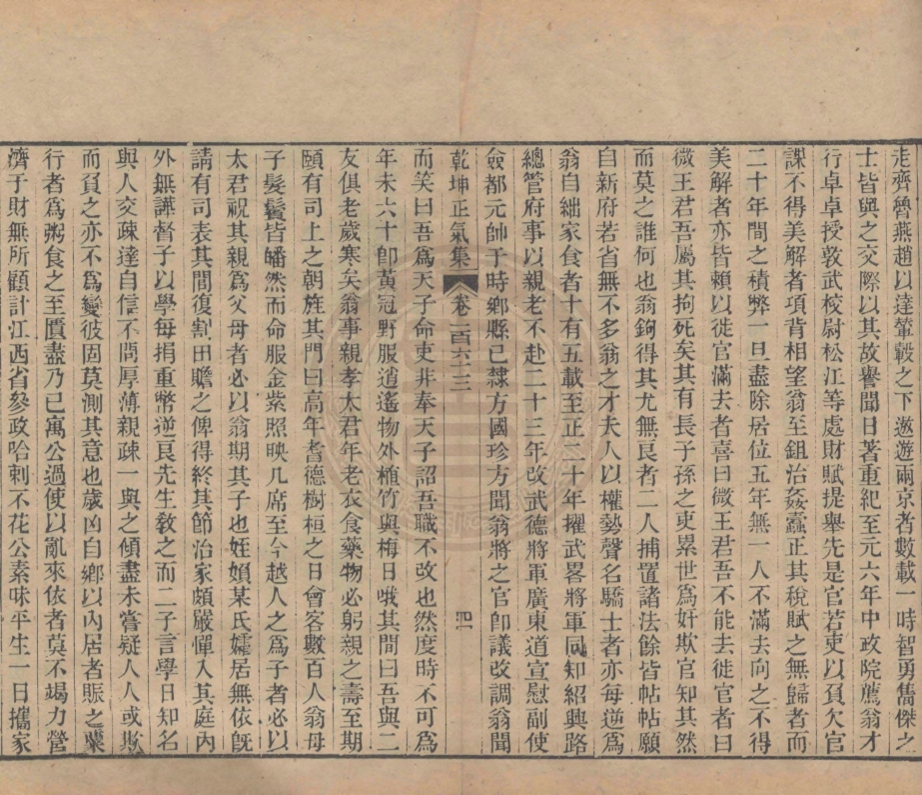 走齊魯燕趙以達輦轂之下遨遊兩京者數載一時智勇雋傑之
士皆與之交際以其故譽聞日著重紀至元六年中政院薦翁才
行卓卓授敦武校尉松江等處財賦提舉先是官若吏以負欠官
課不得美解者項背相望翁至鉏治姦蠹正其稅賦之無歸者而
二十年間之積弊一旦盡除居位五年無一人不滿去向之不得
美解者亦皆賴以徙官滿去者喜曰微王君吾不能去徙官者曰
微王君吾屬其拘死矣其有長子孫之吏累世為奸欺官知其然
而莫之誰何也翁鉤得其尤無良者二人捕置諸法餘皆帖帖願
自新府若省無不多翁之才夫人以權勢聲名驕士者亦每逆為
翁自絀家食者十有五載至正二十年擢武畧將軍同知紹興路
總管府事以親老不赴二十三年改武德將軍廣東道宣慰副使
僉都元帥于時鄉縣已隸方國珍方聞翁將之官卽議改調翁聞
乾坤正氣集 卷二百六十三 四二
而笑曰吾為天子命吏非奉天子詔吾職不改也然度時不可為
年未六十卽黃冠野服逍遙物外植竹與梅日哦其間曰吾與二
友俱老歲寒矣翁事親孝太君年老衣食藥物必躬親之壽至期
頤有司上之朝旌其門曰高年耆德樹桓之日會客數百人翁母
子髮鬢皆皤然而命服金紫照映几席至今越人之為子者必以
太君祝其親為父母者必以翁期其子也姪媍某氏孀居無依旣
請有司表其閭復割田贍之俾得終其節治家頗嚴憚入其庭內
外無譁督子以學每捐重幣逆良先生敎之而二子言學日知名
與人交疎達自信不問厚薄親疎一與之傾盡未嘗疑人人或欺
而負之亦不為變彼固莫測其意也歲凶自鄉以內居者賑之粟
行者為粥食之至匱盡乃已寓公過使以亂來依者莫不竭力營
濟于財無所顧計江西省參政哈剌不花公素味平生一日攜家